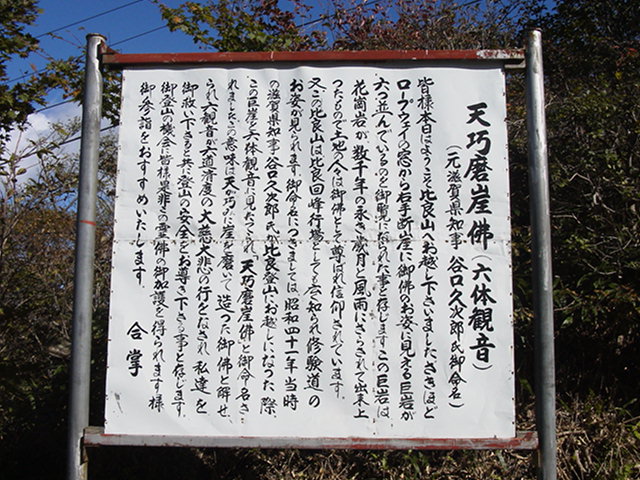 天巧磨崖佛(六体観音)
(元滋賀県知事 谷口久次郎氏御命名)
皆様本日はようこそ比良山へお越し下さいました、さきほど
ロープウェイの窓から右手断崖に御佛のお姿に見える巨岩が
六つ並んでいるのを御覧になられた事と存じますこの巨岩は
花崗岩が数千年の永き歳月と風雨にさらされて出来上
ったもので土地の人は御佛として尊ばれ信仰されています。
又この比良山は比良回峰行夢としても広く知られ修験道の
お姿が見られます。御命名につきましては、昭和四十一年当時
の滋賀県知事谷口久次郎氏が比良登山にお越しになった際、
この巨岩を六体観音に見たてられ「天巧磨崖佛」と御命名さ
れました。この意味は天が巧みに崖を磨いて造った御佛と解せ、
られ六観音が六道済度の大慈大悲の行をなされ私達を
御救い下さると共に登山の安全をお導き下さる事と存じます。
御登山の機会に皆様是非この霊佛の御加護を得られます様
御参詣をおすすめいたします。
合掌